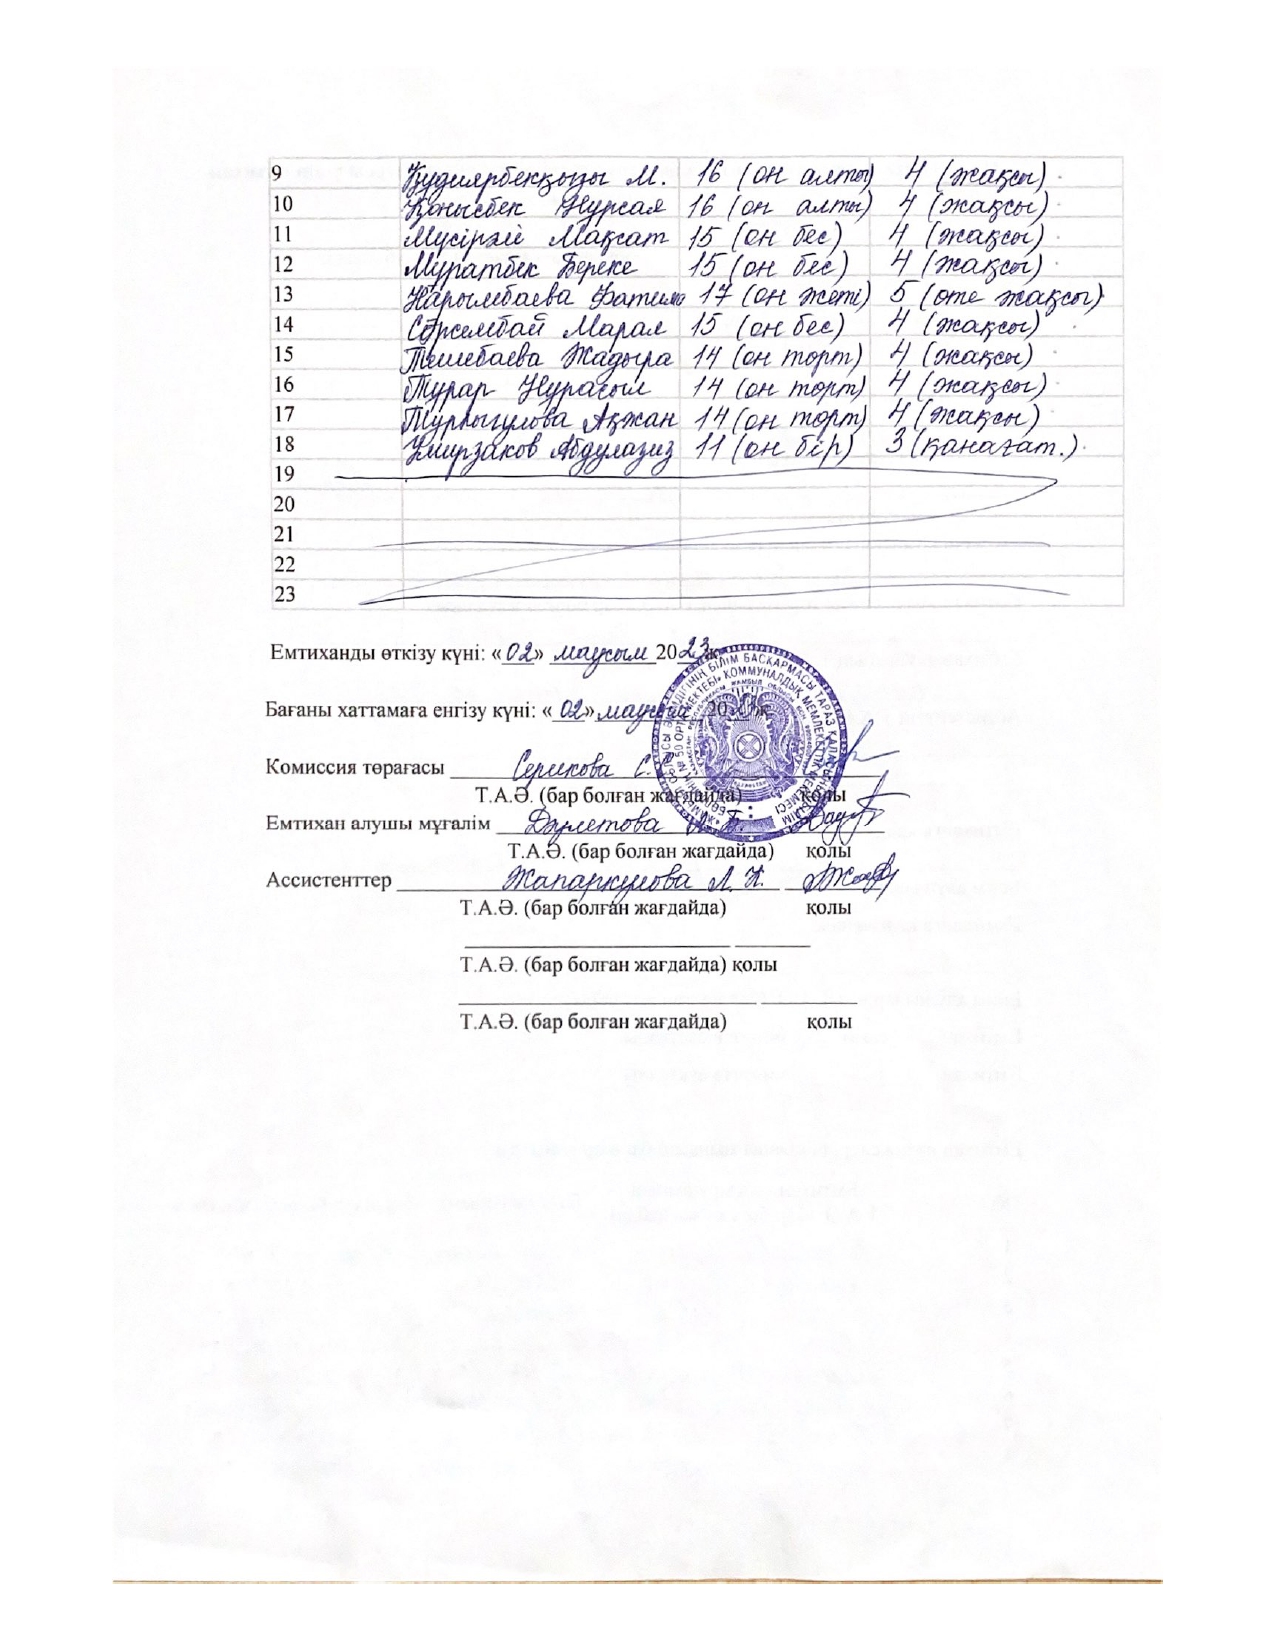 9 Құдиярбекқызы М. 16 (он алты) 4 (жақсы)
10 Қонысбек Нұрсая 16 (он алты) 4 (жақсы)
11 Мүсірәлі Мақсат 15 (он бес) 4 (жақсы)
12 Мұратбек Береке 15 (он бес) 4 (жақсы)
13 Нарымбаева Фатима 17 (он жеті) 5 (өте жақсы)
14 Сәрсембай Марал 15 (он бес) 4 (жақсы)
15 Темебаева Жадыра 14 (он төрт) 4 (жақсы)
16 Тұрар Нұрасыл 14 (он төрт) 4 (жақсы)
17 Тұрлығулова Ақжан 14 (он төрт) 4 (жақсы)
18 Умирзаков Абдулазиз 11 (он бір) 3 (қанағат.)
19
20
21
22
23
Емтиханды өткізу күні: «02» маусым 2023ж
Бағаны хаттамаға енгізу күні: «02» маусым 2023ж
Комиссия төрағасы Серикова С.
Т.А.Ә. (бар болған жағдайда) қолы
Емтихан алушы мұғалім Дәулетова Б.
Т.А.Ә. (бар болған жағдайда) қолы
Ассистенттер Жапаркулова Л. К.
Т.А.Ә. (бар болған жағдайда) қолы
Т.А.Ә. (бар болған жағдайда) қолы
Т.А.Ә. (бар болған жағдайда) қолы